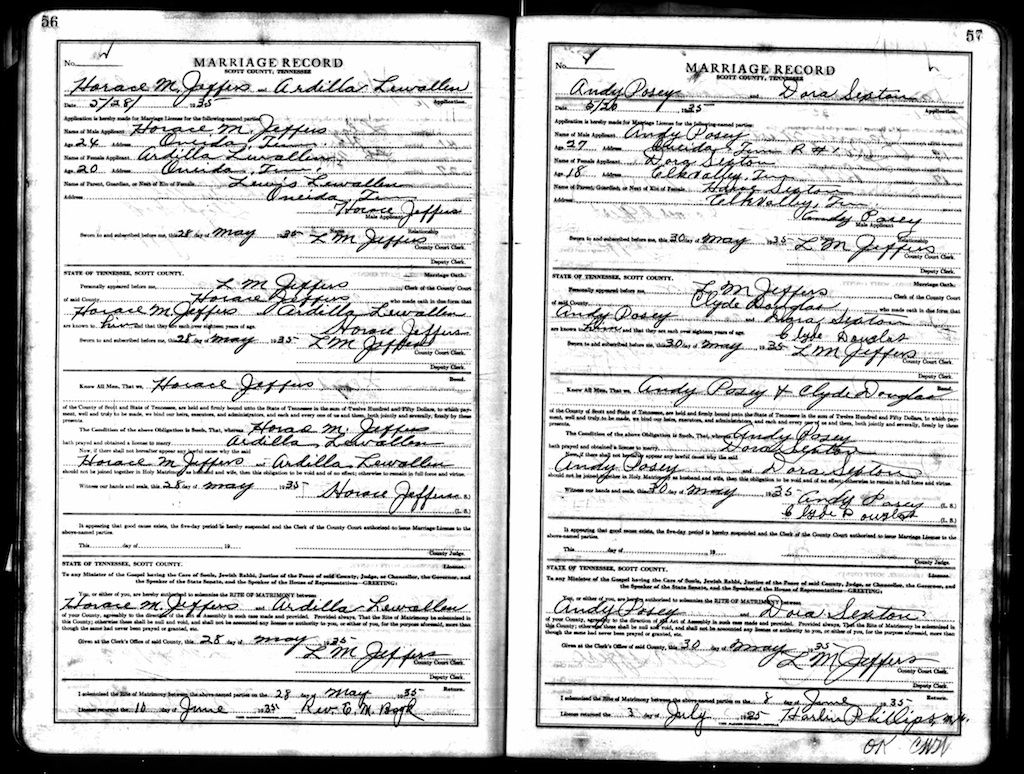 56
No. 4
MARRIAGE RECORD
SCOTT COUNTY, TENNESSEE
Horace M. Jeffers and Ardilla Lewallen
Application.
Date 5/28/ 1935
Application is hereby made for Marriage License for the following-named parties:
Name of Male Applicant Horace M. Jeffers
Age 24 Address Oneida, Tenn.
Name of Female Applicant Ardilla Lewallen
Age 20 Address Oneida, Tenn.
Name of Parent, Guardian, or Next of Kin of Female Lewis Lewallen
Address Oneida, Tenn
Horace Jeffers
Male Applicant
Relationship
Sworn to and subscribed before me, this 28 day of May 1935 L M Jeffers
County Court Clerk.
Deputy Clerk.
STATE OF TENNESSEE, SCOTT COUNTY. Marriage Oath.
Personally appeared before me, L M Jeffers Clerk of the County Court
of said County Horace Jeffers who made oath in due form that
Horace M. Jeffers & Ardilla Lewallen
are known to him and that they are each over eighteen years of age.
Horace Jeffers
Sworn to and subscribed before me, this 28 day of May 1935 L M Jeffers
County Court Clerk.
Deputy Clerk.
Bond.
Know All Men, That we, Horace Jeffers
of the County of Scott and State of Tennessee, are held and firmly bound unto the State of Tennessee in the sum of Twelve Hundred and Fifty Dollars, to which pay-
ment, well and truly to be made, we bind our heirs, executors, and administrators, and each and every one of us and them, both jointly and severally, firmly by these
presents.
The Condition of the above Obligation is Such, That, whereas Horace M. Jeffers
hath prayed and obtained a license to marry Ardilla Lewallen
Now, if there shall not hereafter appear any lawful cause why the said
Horace M. Jeffers and Ardilla Lewallen
should not be joined together in Holy Matrimony as husband and wife, then this obligation to be void and of no effect; otherwise to remain in full force and virtue.
Witness our hands and seals, this 28 day of May 1935
Horace Jeffers (L. S.)
(L. S.)
It appearing that good cause exists, the five-day period is hereby suspended and the Clerk of the County Court authorized to issue Marriage License to the
above-named parties.
This day of 19
County Judge.
STATE OF TENNESSEE, SCOTT COUNTY. License.
To any Minister of the Gospel having the Care of Souls, Jewish Rabbi, Justice of the Peace of said County, Judge, or Chancellor, the Governor, and
the Speaker of the State Senate, and the Speaker of the House of Representatives—GREETING:
You, or either of you, are hereby authorized to solemnize the RITE OF MATRIMONY between
Horace M. Jeffers and Ardilla Lewallen
of your County, agreeably to the direction of the Act of Assembly in such case made and provided. Provided always, That the Rite of Matrimony be solemnized in
this County; otherwise these shall be null and void, and shall not be accounted any license or authority to you, or either of you, for the purpose aforesaid, more than
though the same had never been prayed or granted, etc.
Given at the Clerk's Office of said County, this 28 day of May 1935
L M Jeffers
County Court Clerk.
Deputy Clerk.
Return.
I solemnized the Rite of Matrimony between the above-named parties on the 28 day of May 1935
License returned the 10 day of June 1935 Rev. C. M.
57
No. 4
MARRIAGE RECORD
SCOTT COUNTY, TENNESSEE
Andy Posey and Dora Sexton
Application.
Date 5/20 1935
Application is hereby made for Marriage License for the following-named parties:
Name of Male Applicant Andy Posey
Age 27 Address Oneida, Tenn R #1
Name of Female Applicant Dora Sexton
Age 18 Address Elk Valley, Tenn
Name of Parent, Guardian, or Next of Kin of Female Sexton
Address Elk Valley, Tenn.
Andy Posey
Male Applicant
Relationship
Sworn to and subscribed before me, this 30 day of May 1935 L M Jeffers
County Court Clerk.
Deputy Clerk.
STATE OF TENNESSEE, SCOTT COUNTY. Marriage Oath.
Personally appeared before me, L M Jeffers Clerk of the County Court
of said County Clyde Douglas who made oath in due form that
Andy Posey and Dora Sexton
are known to him and that they are each over eighteen years of age.
Clyde Douglas
Sworn to and subscribed before me, this 30 day of May 1935 L M Jeffers
County Court Clerk.
Deputy Clerk.
Bond.
Know All Men, That we, Andy Posey & Clyde Douglas
of the County of Scott and State of Tennessee, are held and firmly bound unto the State of Tennessee in the sum of Twelve Hundred and Fifty Dollars, to which pay-
ment, well and truly to be made, we bind our heirs, executors, and administrators, and each and every one of us and them, both jointly and severally, firmly by these
presents.
The Condition of the above Obligation is Such, That, whereas Andy Posey
hath prayed and obtained a license to marry Dora Sexton
Now, if there shall not hereafter appear any lawful cause why the said
Andy Posey and Dora Sexton
should not be joined together in Holy Matrimony as husband and wife, then this obligation to be void and of no effect; otherwise to remain in full force and virtue.
Witness our hands and seals, this 30 day of May 1935
Andy Posey (L. S.)
Clyde Douglas (L. S.)
It appearing that good cause exists, the five-day period is hereby suspended and the Clerk of the County Court authorized to issue Marriage License to the
above-named parties.
This day of 19
County Judge.
STATE OF TENNESSEE, SCOTT COUNTY. License.
To any Minister of the Gospel having the Care of Souls, Jewish Rabbi, Justice of the Peace of said County, Judge, or Chancellor, the Governor, and
the Speaker of the State Senate, and the Speaker of the House of Representatives—GREETING:
You, or either of you, are hereby authorized to solemnize the RITE OF MATRIMONY between
Andy Posey and Dora Sexton
of your County, agreeably to the direction of the Act of Assembly in such case made and provided. Provided always, That the Rite of Matrimony be solemnized in
this County; otherwise these shall be null and void, and shall not be accounted any license or authority to you, or either of you, for the purpose aforesaid, more than
though the same had never been prayed or granted, etc.
Given at the Clerk's Office of said County, this 30 day of May 1935
L M Jeffers
County Court Clerk.
Deputy Clerk.
Return.
I solemnized the Rite of Matrimony between the above-named parties on the 8 day of June 1935
License returned the 3 day of July 1935 Harlin Phillips, M.G.
OK CWW